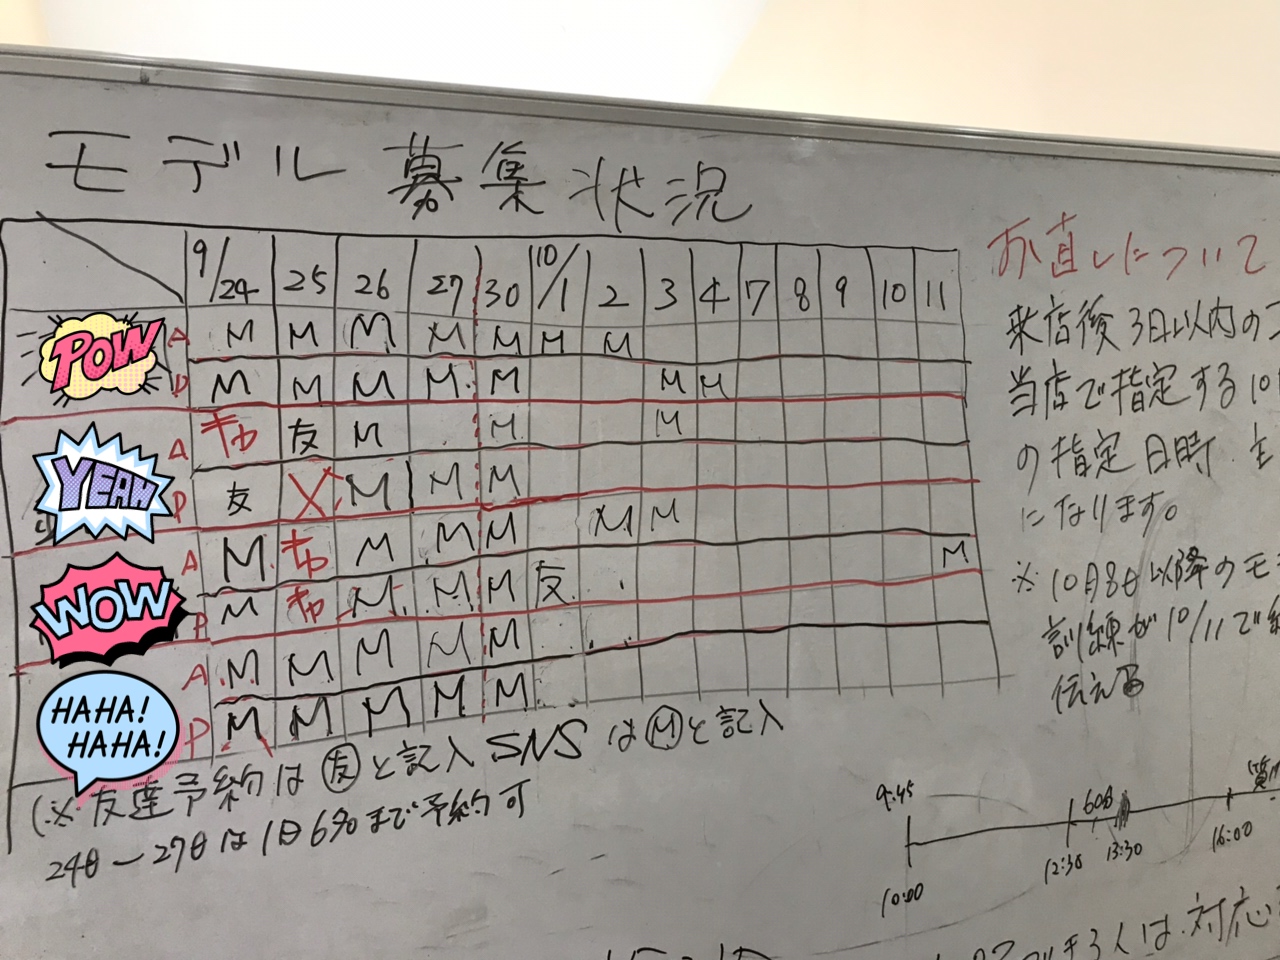 モデル募集状況
9/24 25 26 27 30 10/1 2 3 4 7 8 9 10 11
POW
A M M M M M M M
P M M M M M M M
YEAH
A キャ 友 M M M
P 友 X M M M
WOW
A M キャ M M M M M M
P M キャ M M M 友
HAHA!
HAHA!
A M M M M M
P M M M M M
(※友達予約は友と記入 SNSはMと記入
24日ー27日は1日6名まで予約可
お直しについて
来店後3日以内の
当店で指定する10
の指定日時
になります。
※10月8日以降のモ
訓練が10/11で
伝える
9:45 60分
10:00 12:30 13:30 16:00
人は対応